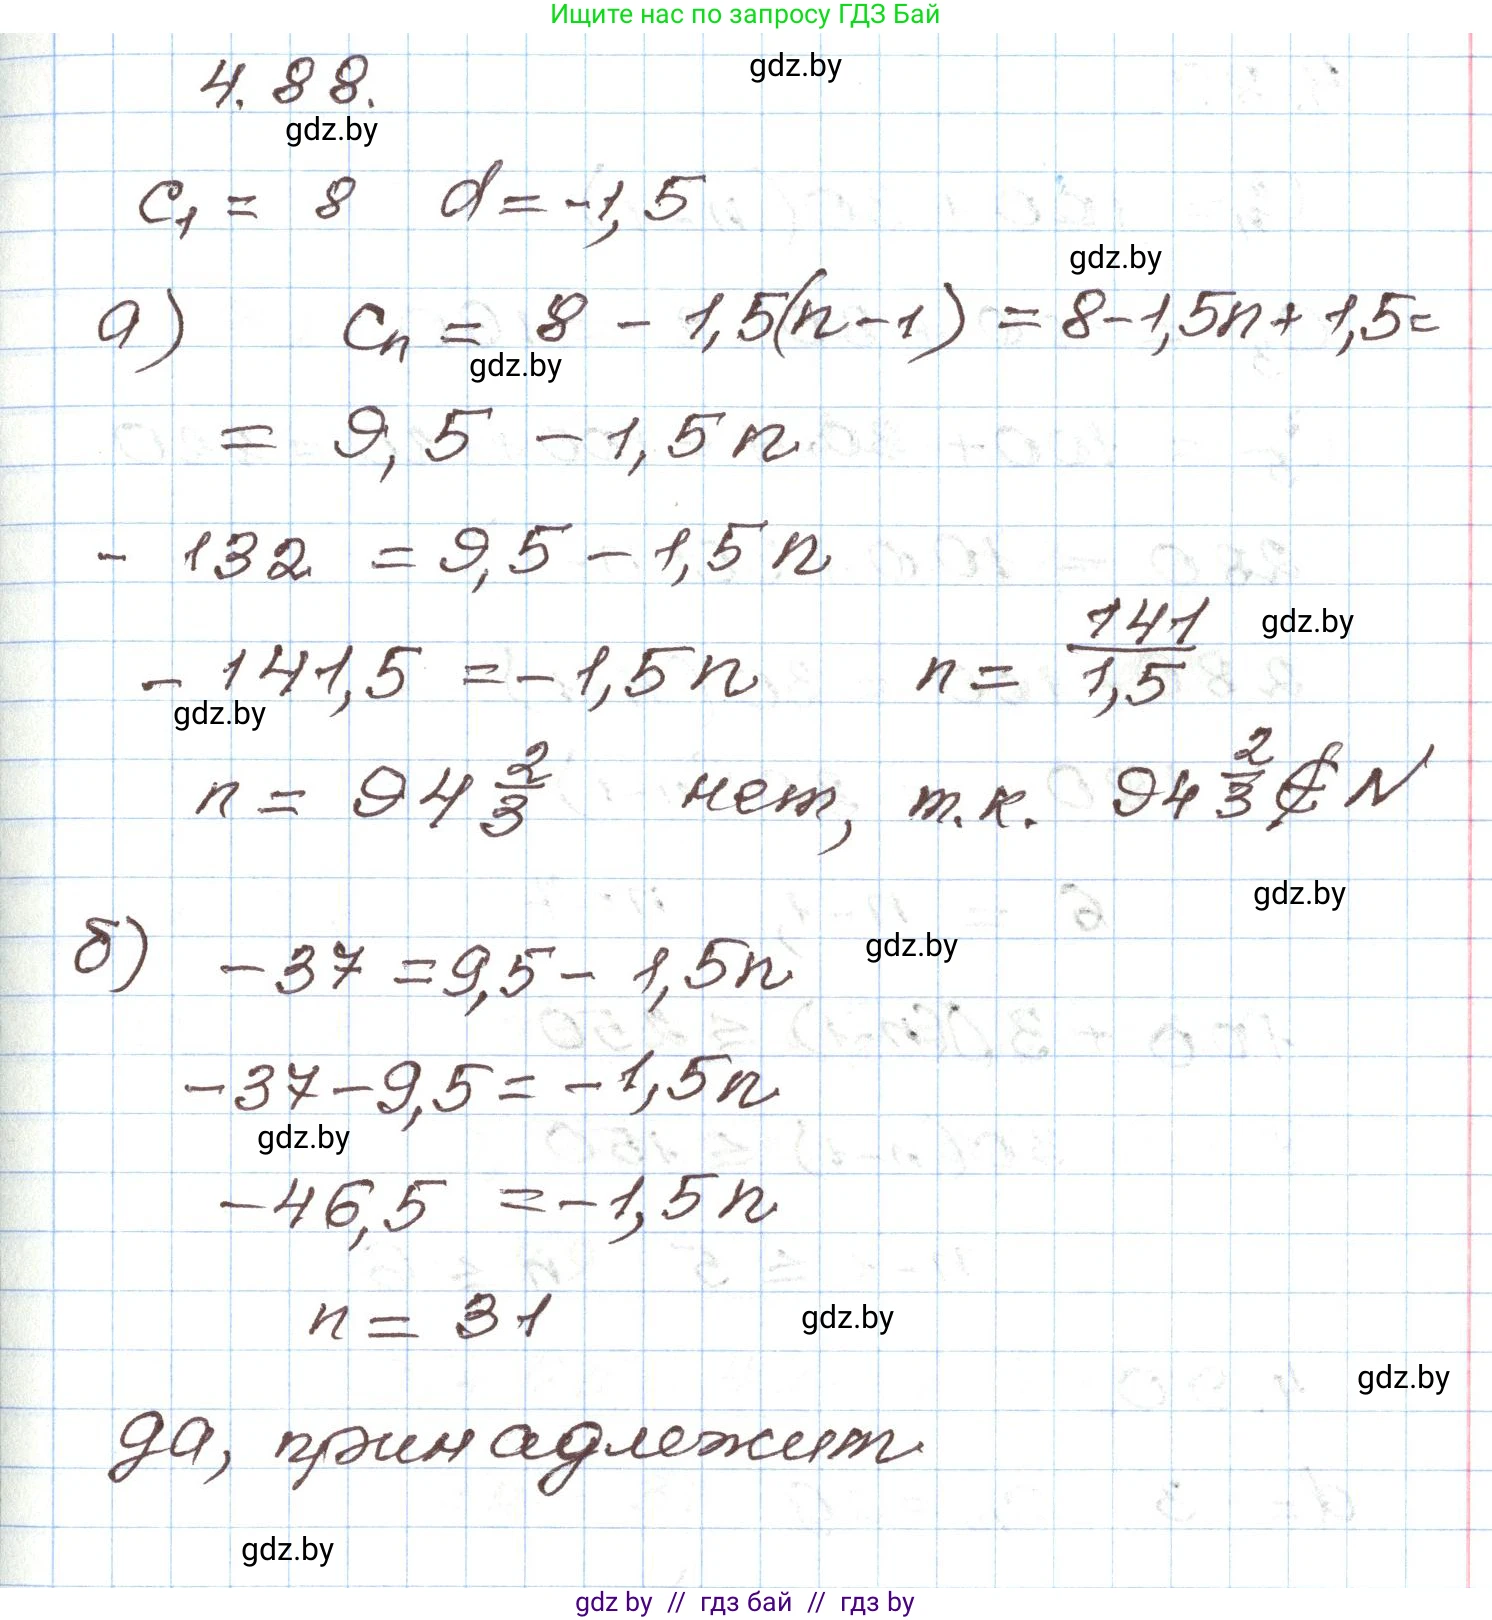 Ищите нас по запросу ГДЗ Бай
4.88.
gdz.by
gdz.by
c₁ = 8 d = -1,5
gdz.by
а) cₙ = 8 - 1,5(n-1) = 8-1,5n + 1,5=
gdz.by
= 9,5 - 1,5n
- 132 = 9,5 - 1,5n
- 141,5 = -1,5n n = 141/1,5
gdz.by
gdz.by
n = 94 2/3 нет, т.к. 94 2/3 ∉ N
gdz.by
б) -37 = 9,5 - 1,5n
gdz.by
-37-9,5 = -1,5n
gdz.by
-46,5 = -1,5n
n = 31
gdz.by
gdz.by
да, принадлежит
gdz.by
gdz by // гдз бай // гдз by